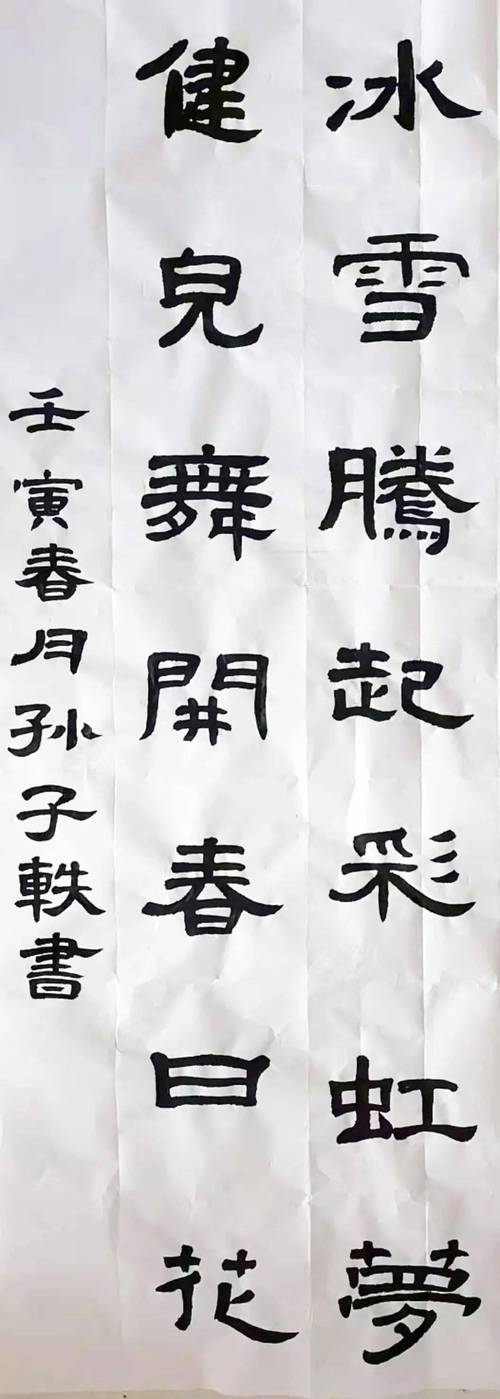 冰雪騰起彩虹夢
健兒舞開春日花
壬寅春月孙子軼書